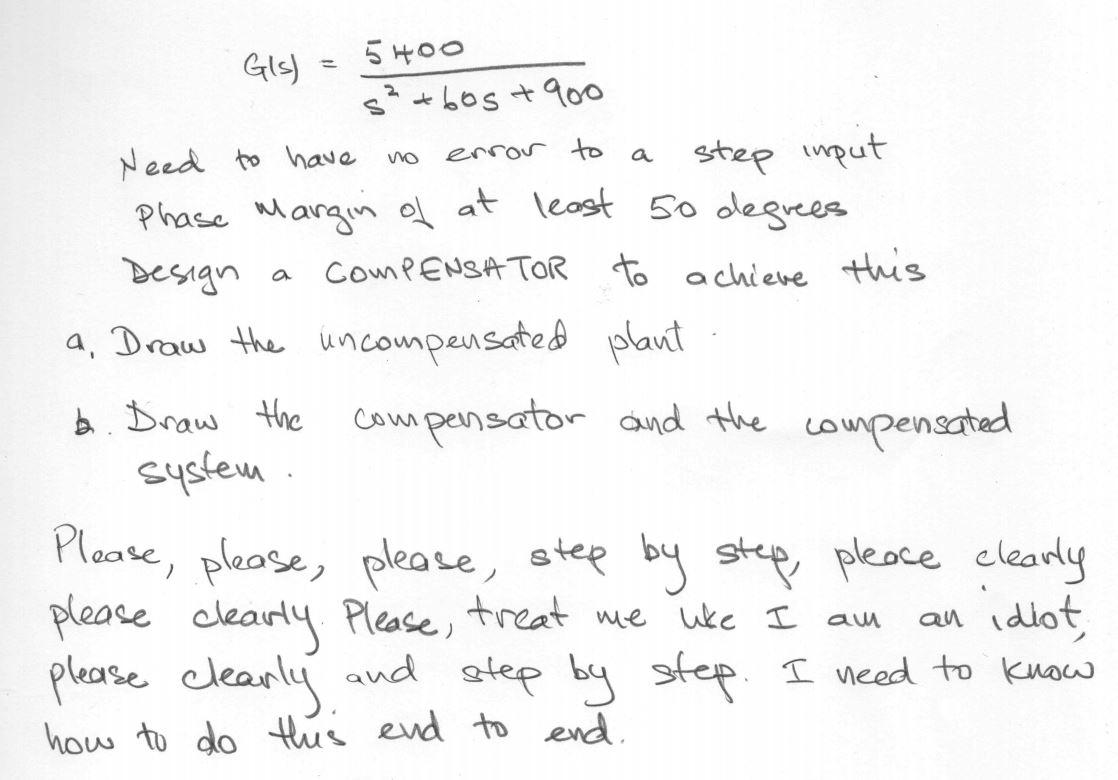 G(s) = 5400 / s² + 60s + 900
Need to have no error to a step input
Phase Margin of at least 50 degrees
Design a COMPENSATOR to achieve this
a, Draw the uncompensated plant .
b. Draw the compensator and the compensated
system .
Please, please, please, step by step, please clearly
please clearly. Please, treat me like I am an idiot,
please clearly and step by step. I need to know
how to do this end to end.